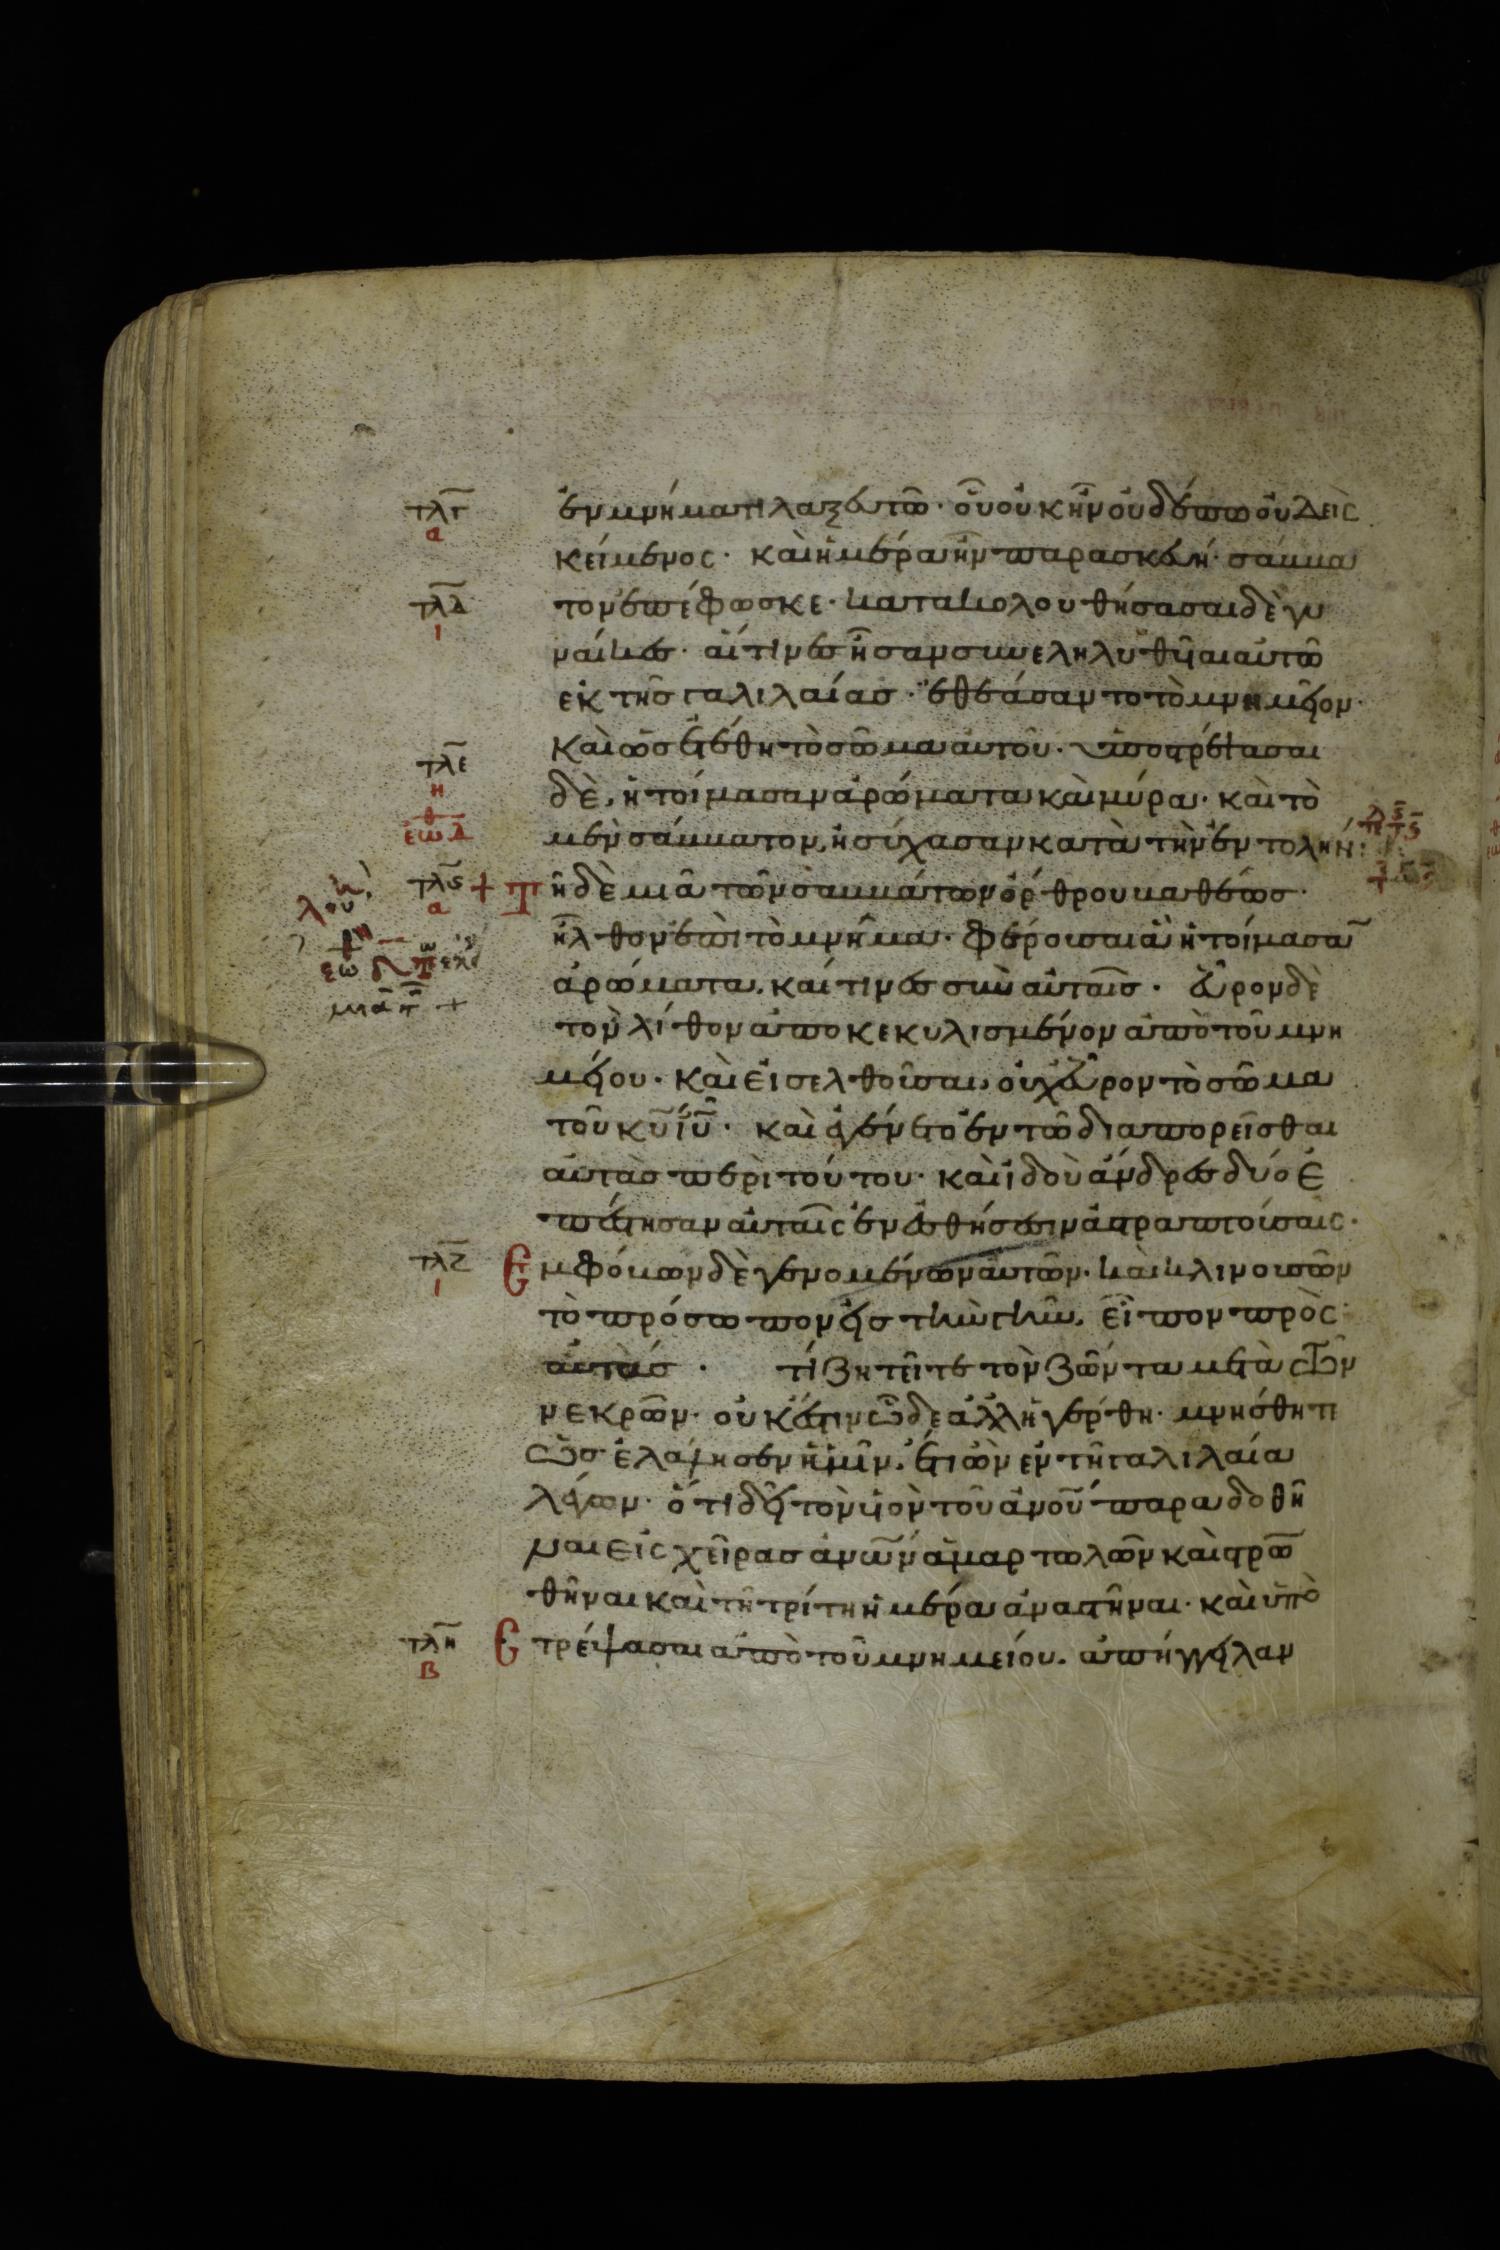 τλγ
α
ἐν μνήματι λαξευτῶ· οὗ οὐκ ἦν οὐδέπω οὐδεὶς
κείμενος· καὶ ἡμέρα ἦν παρασκευή· σάββα
τλδ
ι
τον ἐπέφωσκε· κατακολουθήσασαι δὲ γυ
ναίκες· αἵτινες ἦσαν συνεληλυθῦιαι αὐτῶ
ἐκ τῆς γαλιλαίας· ἐθεάσαντο τὸ μνημεῖον·
καὶ ὡς ἐτέθη τὸ σῶμα αὐτοῦ· ὑποστρέψασαι
τλε
η
δὲ, ἡτοίμασαν ἀρώματα καὶ μύρα· καὶ τὸ
θ
ἑωΔ
μὲν σάββατον, ἡσύχασαν κατὰ τὴν ἐντολήν:
τλς
α
+ Τῆ δὲ μιᾶ τῶν σαββάτων ὄρθρου βαθέως·
ἦλθον ἐπὶ τὸ μνῆμα· φέρουσαι ἃ ἡτοίμασα̅
ἀρώματα. καί τινες σὺν αὐταῖς· εὗρον δὲ
τὸν λίθον ἀποκεκυλισμένον ἀπὸ τοῦ μνη
μείου· καὶ εἰσελθοῦσαι, οὐχ εὗρον τὸ σῶμα
τοῦ κ̅υ̅ ἰ̅υ̅· καὶ ἐγένετο ἐν τῶ διαπορεῖσθαι
αὐτὰς περὶ τούτου· καὶ ἰδοὺ ἄνδρες δύο ἐ
πέστησαν αὐταῖς ἐν ἐσθήσεσιν ἀστραπτούσαις·
τλζ
ι
Ἐμφόβων δὲ γενομένων αὐτῶν· καὶ κλινουσῶν
τὸ πρόσωπον εἰς τὴν γῆν, εἶπον πρὸς
αὐτάς· τί ζητεῖτε τὸν ζῶντα μετὰ τῶν
νεκρῶν· οὐκ ἔστιν ὧδε ἀλλ' ἠγέρθη· μνήσθητι
ὡς ἐλάλησεν ἡμῖν. ἔτι ὢν ἐν τῆ γαλιλαία
λέγων· ὅτι δεῖ τὸν υἱὸν τοῦ ἀ̅ν̅ο̅υ̅ παραδοθῆ
ναι εἰς χεῖρας ἀ̅ν̅ω̅ν̅ ἁμαρτωλῶν καὶ στρω̅
θῆναι καὶ τῆ τρίτη ἡμέρα ἀναστῆναι· καὶ ὑπο
τλη
β
Ἑτρέψασαι ἀπὸ τοῦ μνημείου. ἀπήγγειλαν